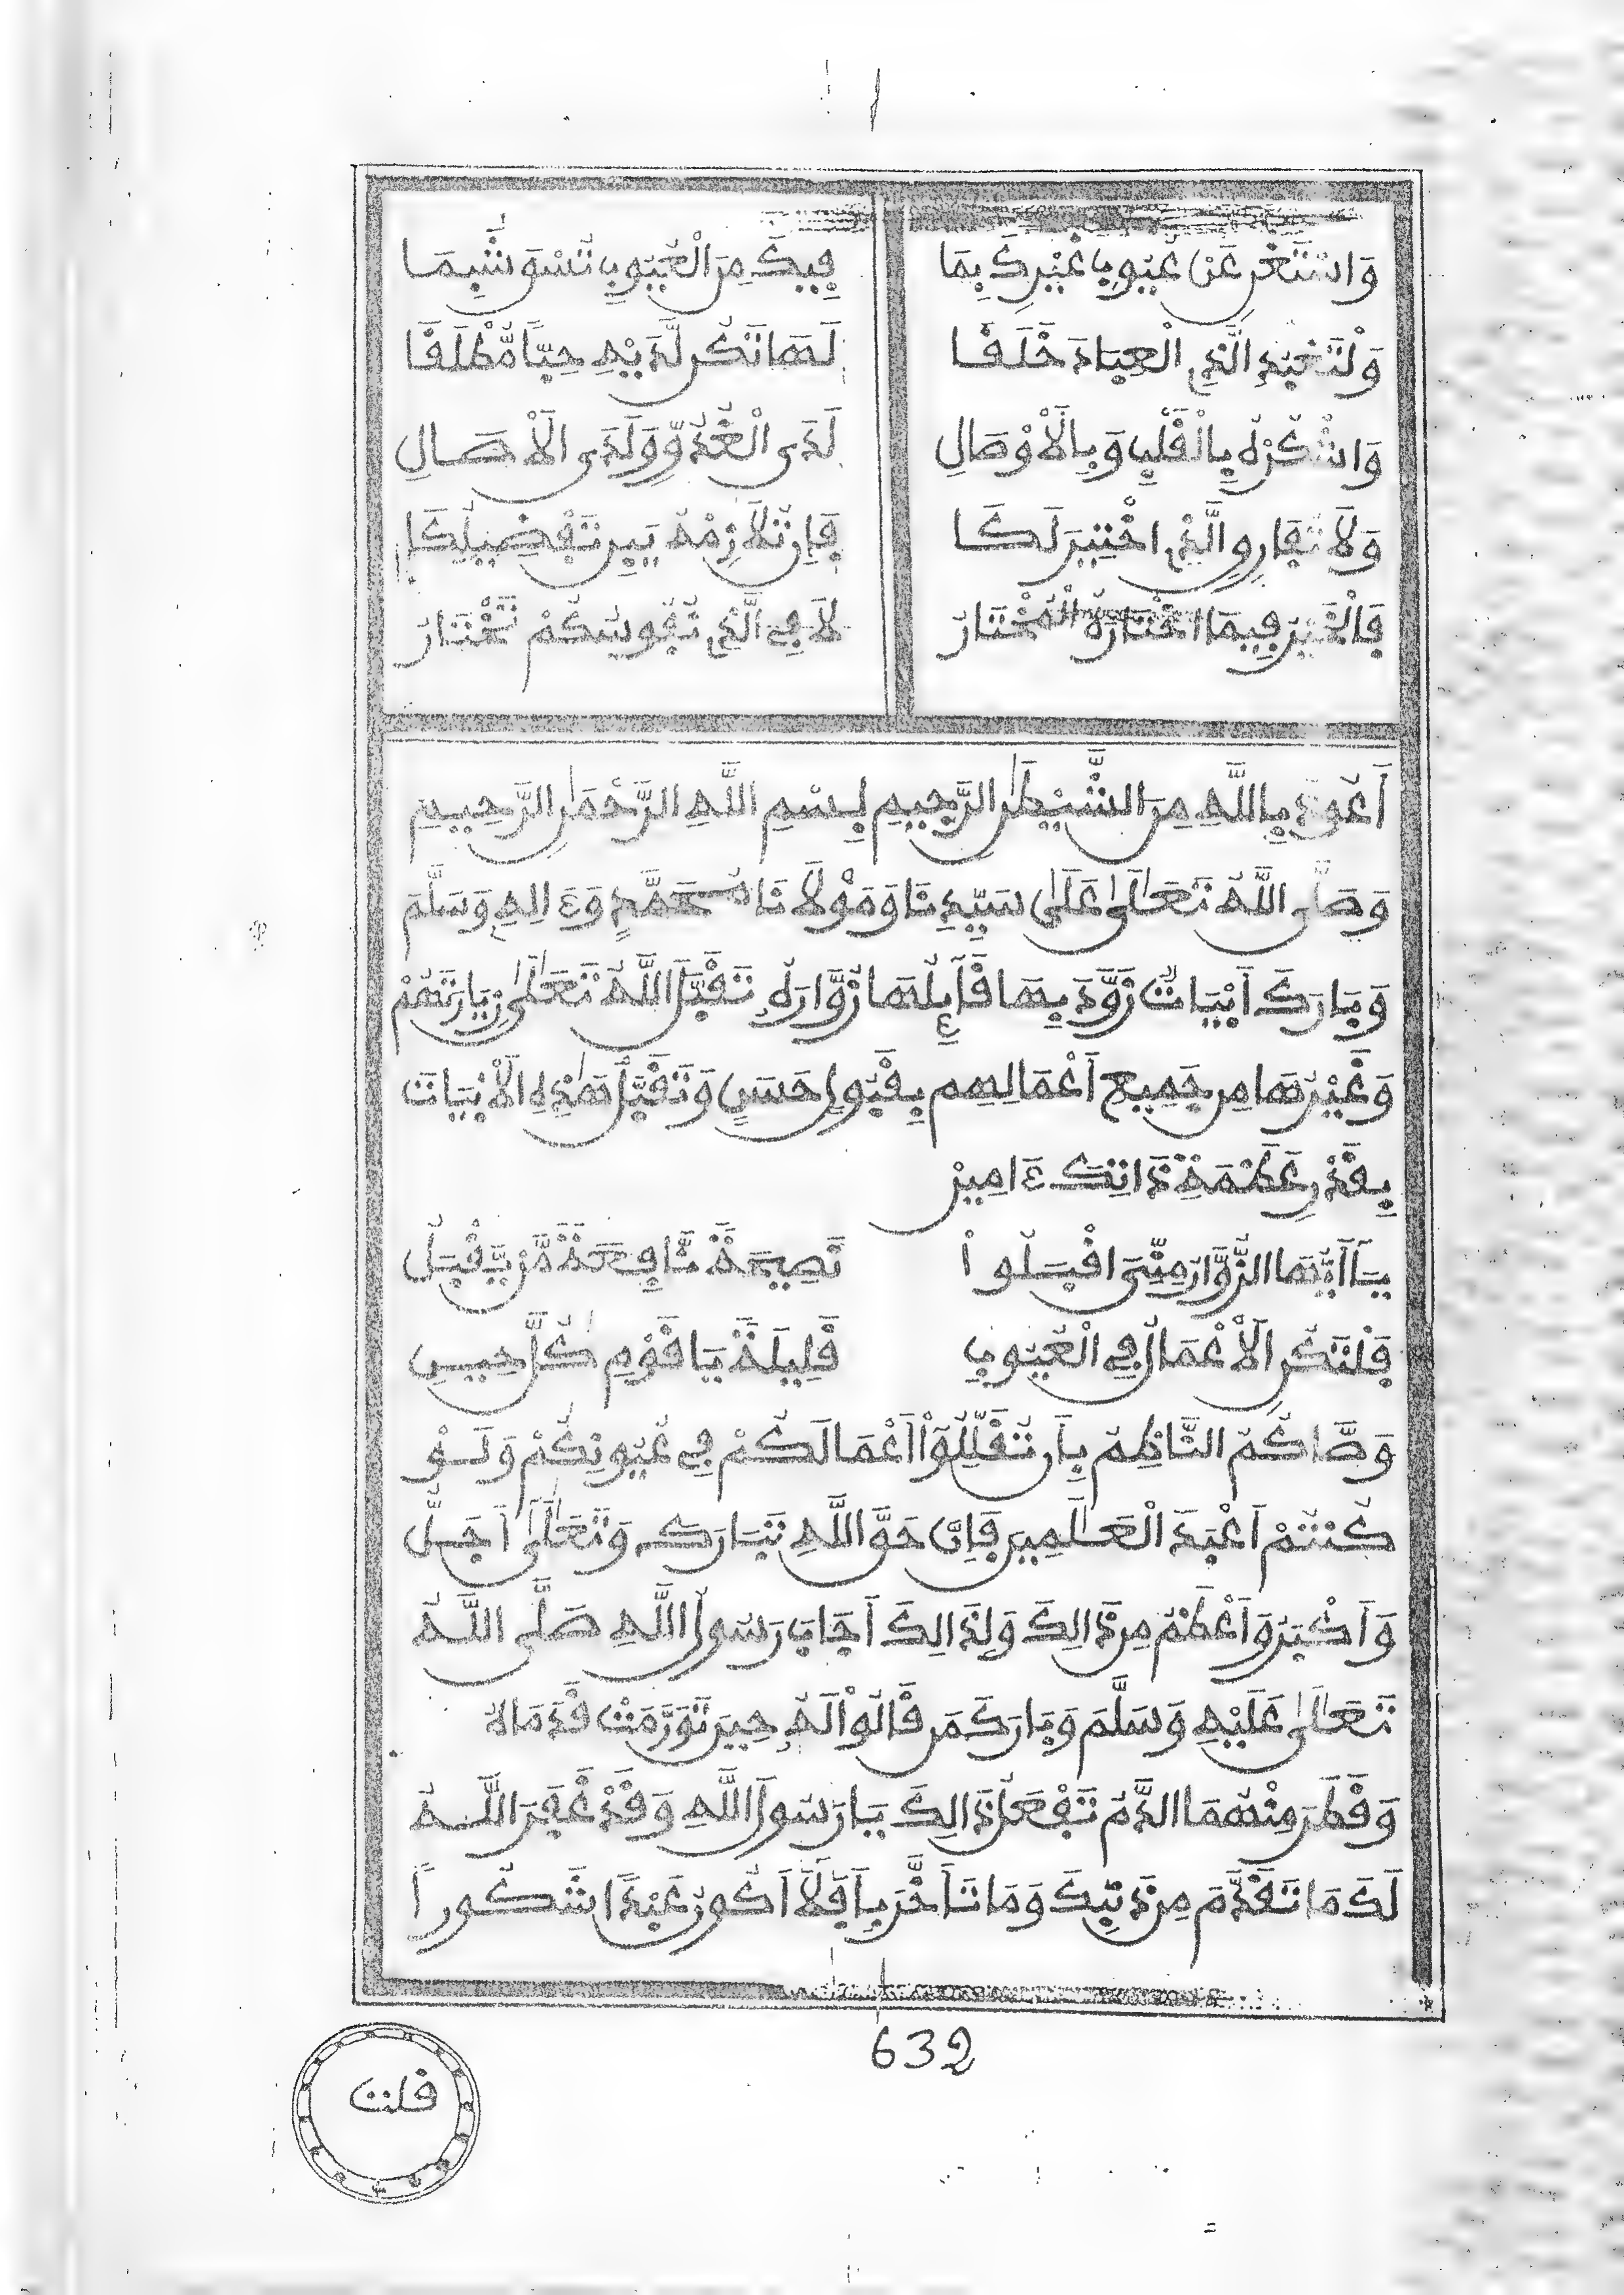 وَاسْتَغْنِ عَنْ عُيُوبِ غَيْرِكَ بِمَا فِيكَ مِنَ الْعُيُوبِ تَسْوَ شِيَمَا
وَلْتَعْبُدِ الَّذِي الْعِبَادَ خَلَقَا لَهَا تَكُن لَّدَيْهِ حِبّاً مُّطْلَقَا
وَاشْكُرْهُ بِالْقَلْبِ وَبِالْأَوْصَالِ لَدَى الْغُدُوِّ وَلَدَى الْأَصَالِ
وَلَا تُفَارِقِ الَّذِي اخْتِيرَ لَكَا فَإِن تُلَازِمْهُ يَبِن تَفْضِيلُكَا
فَالْخَيْرُ فِيمَا اخْتَارَهُ الْمُخْتَارُ لَا فِي الَّذِي نُفُوسُكُمْ تَخْتَارُ
أَعُوذُ بِاللَّهِ مِنَ الشَّيْطَٰنِ الرَّجِيمِ بِسْمِ اللَّهِ الرَّحْمَٰنِ الرَّحِيمِ
وَصَلَّى اللَّهُ تَعَالَىٰ عَلَىٰ سَيِّدِنَا وَمَوْلَانَا مُحَمَّدٍ وَءَالِهِ وَسَلَّمَ
وَبَارَكَ أَبْيَاتٌ زَوَّدَ بِهَا قَائِلُهَا زُوَّارَهُ تَقَبَّلَ اللَّهُ تَعَالَىٰ زِيَارَتَهُمْ
وَغَيْرَهَا مِن جَمِيعِ أَعْمَالِهِم بِقَبُولٍ حَسَنٍ وَتَقَبَّلَ هَٰذِهِ الْأَبْيَاتَ
بِقَدْرِ عَظَمَةِ ذَاتِكَ ءَامِين
يَا أَيُّهَا الزُّوَّارُ مِنِّي اقْبَلُواْ نَصِيحَةً نَّافِعَةً مَّن يَّقْبَلُ
فَلْتَكُنِ الْأَعْمَالُ فِي الْعُيُونِ قَلِيلَةً يَا قَوْمِ كُلَّ حِينِ
وَصَّاكُمُ النَّاظِمُ بِأَن تُقَلِّلُوٓاْ أَعْمَالَكُمْ فِي عُيُونِكُمْ وَلَوْ
كُنتُمْ أَعْبَدَ الْعَالَمِينَ فَإِنَّ حَقَّ اللَّهِ تَبَارَكَ وَتَعَالَىٰ أَجَلُّ
وَأَكْبَرُ وَأَعْظَمُ مِن ذَالِكَ وَلِذَالِكَ أَجَابَ رَسُولُ اللَّهِ صَلَّى اللَّهُ
تَعَالَىٰ عَلَيْهِ وَسَلَّمَ وَبَارَكَ مَن قَالُواْ لَهُ حِينَ تَوَرَّمَتْ قَدَمَاهُ
وَقَطَرَ مِنْهُمَا الدَّمُ تَفْعَلُ ذَالِكَ يَا رَسُولَ اللَّهِ وَقَدْ غَفَرَ اللَّهُ
لَكَ مَا تَقَدَّمَ مِن ذَنبِكَ وَمَا تَأَخَّرَ بِأَفَلَا أَكُونُ عَبْداً شَكُوراً
632
قلت